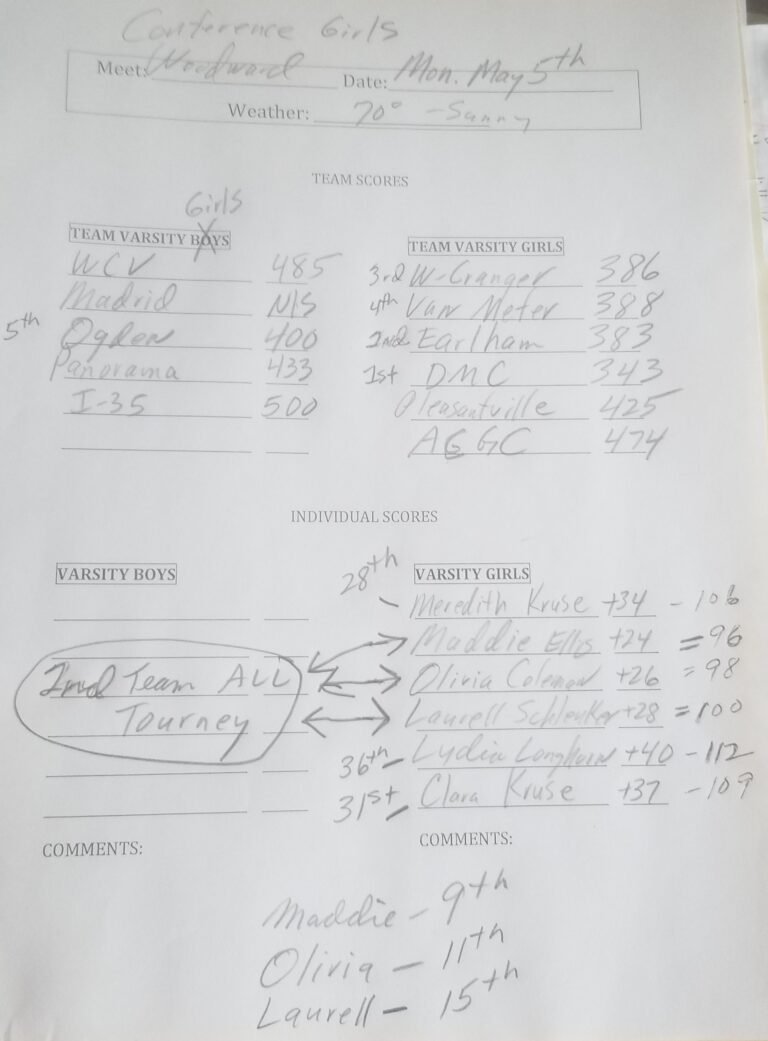 Conference Girls
Meet: Woodward Date: Mon. May 5th
Weather: 70° - Sunny
TEAM SCORES
Girls
TEAM VARSITY BOYS
WCV 485
Madrid N/S
5th Ogden 400
Panorama 433
I-35 500
TEAM VARSITY GIRLS
3rd W-Granger 386
4th Van Meter 388
2nd Earlham 383
1st DMC 343
Pleasantville 425
AGGC 474
INDIVIDUAL SCORES
VARSITY BOYS
2nd Team ALL
Tourney
VARSITY GIRLS
28th - Meredith Kruse +34 - 106
Maddie +24 = 96
Olivia Coleman +26 = 98
Laurell +28 = 100
36th - Lydia Longhorn +40 - 112
31st - Clara Kruse +37 - 109
COMMENTS:
COMMENTS:
Maddie - 9th
Olivia - 11th
Laurell - 15th